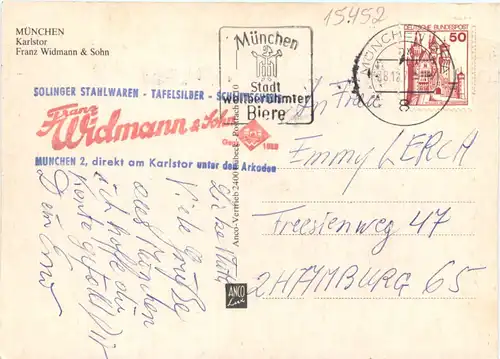 15452
MÜNCHEN
Karlstor
Franz Widmann & Sohn
München
Stadt
weltberühmter
Biere
MÜNCHEN
8
DEUTSCHE BUNDESPOST
50
SOLINGER STAHLWAREN - TAFELSILBER -
Franz
Widmann & Sohn
Gegr. 1888
MÜNCHEN 2, direkt am Karlstor unter den Arkaden
Anco-Vertrieb 2400 Lübeck
ANCO
Lux
An Frau
Emmy LERCH
Freesenweg 47
2HAMBURG 65
Liebe
Viele Grüße
aus München
ich hoffe die
Karte gefällt Dir
Dein